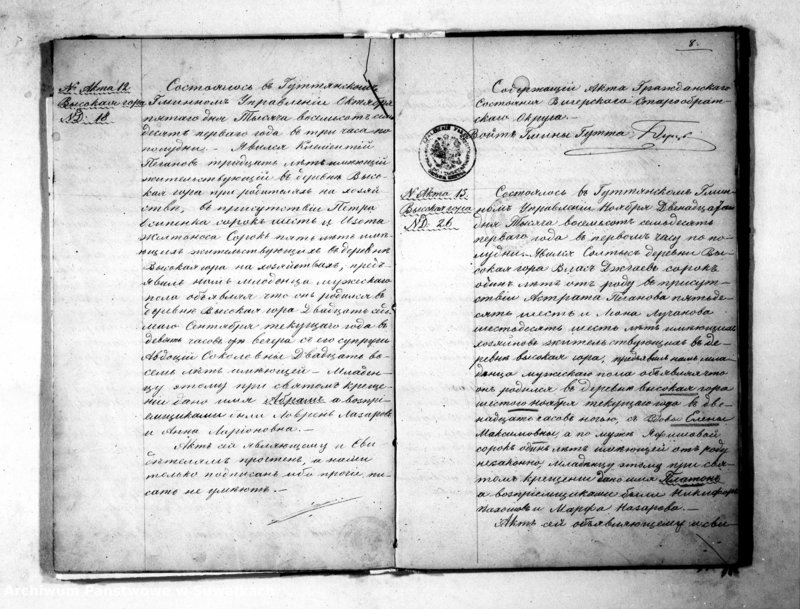 № Акта 12.
Высокая гора
№ Д. 18.
Состоялось въ Гуттянскомъ
Гминномъ Управленіи Октября
пятаго дня Тысяча восемьсотъ семь
десятъ перваго года въ три часа по
полудни. – Явился Климентій
Пегановъ тридцать лѣтъ имѣющій
жительствующій въ деревнѣ Высо-
кая гора при родителяхъ на хозяй
ствѣ, въ присутствіи Петра
сорокъ шесть и Изота
Желтоноса Сорокъ пять лѣтъ имѣ-
ющихъ жительствующихъ въ деревнѣ
Высокая гора на хозяйствахъ, предъ
явилъ намъ младенца мужескаго
пола объявляя что онъ родился въ
деревнѣ Высокая гора Двадцать седь
маго Сентября текущаго года въ
девять часовъ вечера съ его супруги
Авдотьи Соколовны Двадцать во-
семь лѣтъ имѣющей – Младен-
цу этому при святомъ креще-
ніи дано имя Абрамъ а воспрі-
емщиками были Лаврень Назаровъ
и Анна Ларіоновна. –
Актъ сей являющему и Сви-
дѣтелямъ прочтенъ, а нами
только подписанъ ибо прочіе пи-
сать не умѣютъ –
8.
Содержащій Акта Гражданскаго
Состоянія Вигерскаго Старообряд-
ческаго Округа.
Войтъ Гмины Гутта
№ Акта 13.
Высокая гора
№ Д. 26.
Состоялось въ Гуттянскомъ Гмин-
номъ Управленіи Ноября Двенадцатаго
дня Тысяча восемьсотъ семьдесятъ
перваго года въ первомъ часу по по-
лудни. – Явился Солтысъ деревни Вы-
сокая гора Власъ сорокъ
одинъ лѣтъ отъ роду въ присут-
ствіи Астрата Пеганова пятьде-
сятъ шесть и Иона Лучанова
шестьдесятъ шесть лѣтъ имѣющихъ
хозяиновъ жительствующихъ въ де-
ревнѣ высокая гора, предъявилъ намъ мла-
денца мужскаго пола объявляя что
онъ родился въ деревнѣ высокая гора
шестого ноября текущаго года въ две-
надцать часовъ ночью, съ Вдовы Елены
Максимовны а по мужѣ Афишовой
сорокъ одинъ лѣтъ имѣющей отъ роду
незаконно, младенцу этому при свя-
томъ крещеніи дано имя Платонъ
а воспріемщиками были Никифоръ
Пахомовъ и Марфа Назарова. –
Актъ сей объявляющему и сви-
Archiwum Państwowe w Suwałkach